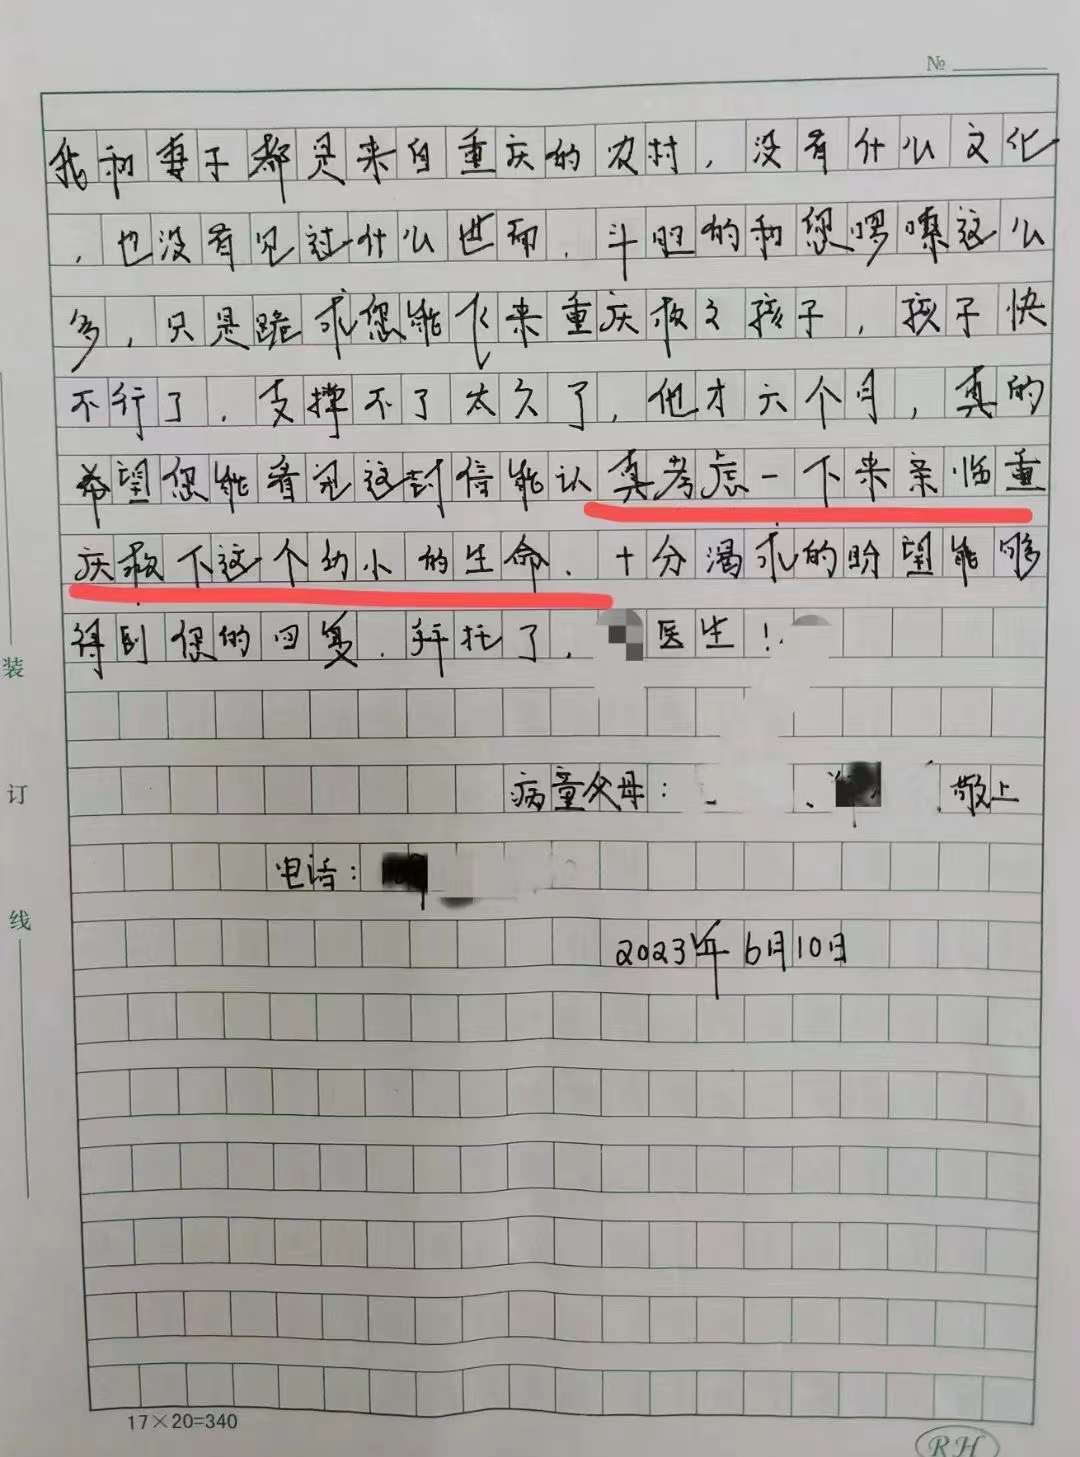 №
我和妻子都是来自重庆的农村，没有什么文化
，也没有见过什么世面，斗胆的和您啰嗦这么
多，只是跪求您能飞来重庆救救孩子，孩子快
不行了，支撑不了太久了，他才六个月，真的
希望您能看见这封信能认真考虑一下来亲临重
庆救下这个幼小的生命，十分渴求的盼望能够
得到您的回复，拜托了，医生！
病童父母：、敬上
电话：
2023年6月10日
装
订
线
17×20=340
RH